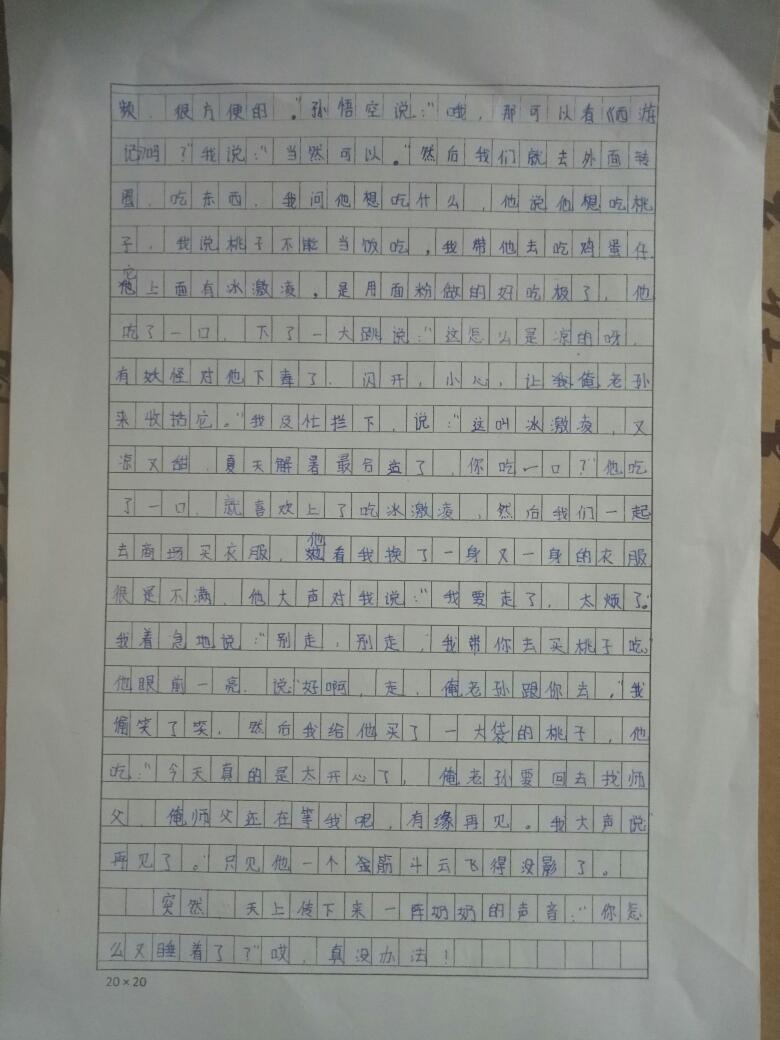 频，很方便的。”孙悟空说：“哦，那可以看《西游
记》吗？”我说：“当然可以。”然后我们就去外面转
圈，吃东西，我问他想吃什么，他说他想吃桃
子，我说桃子不能当饭吃，我带他去吃鸡蛋仔，
它上面有冰激凌，是用面粉做的好吃极了，他
吃了一口，下了一大跳说：“这怎么是凉的呀，
有妖怪对他下毒了，闪开，小心，让我俺老孙
来收拾它。”我及忙拦下，说：“这叫冰激凌，又
凉又甜，夏天解暑最合适了，你吃一口？”他吃
了一口，就喜欢上了吃冰激凌，然后我们一起
去商场买衣服，他看我换了一身又一身的衣服
很是不满，他大声对我说：“我要走了，太烦了。”
我着急地说：“别走，别走，我带你去买桃子吃”
他眼前一亮，说“好啊，走，俺老孙跟你去。”我
偷笑了笑，然后我给他买了一大袋的桃子，他
吃：“今天真的是太开心了，俺老孙要回去找师
父，俺师父还在等我呢，有缘再见。我大声说“
再见了。”只见他一个筋斗云飞得没影了。
突然，天上传下来一阵奶奶的声音：“你怎
么又睡着了？”哎，真没办法！
20×20